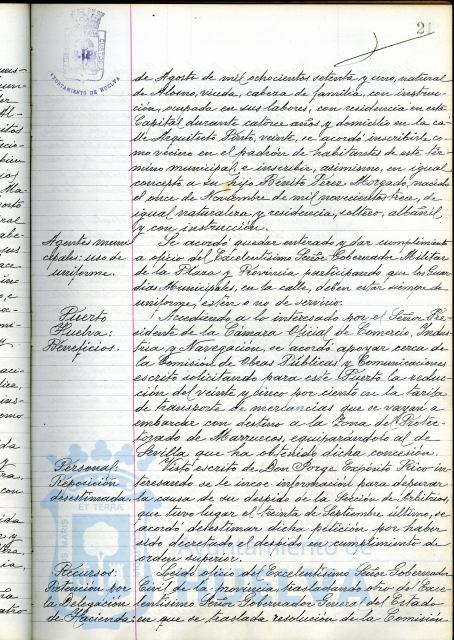 21
AYUNTAMIENTO DE HUELVA
de Agosto de mil ochocientos setenta y uno, natural
de Alosno, viuda, cabeza de familia, con instruc-
ción, ocupada en sus labores, con residencia en esta
Capital durante catorce años y domicilio en la ca-
lle Arquitecto Pinto, veinte, se acordó inscribirle co-
mo vecino en el padrón de habitantes de este tér-
mino municipal, e inscribir, asimismo, en igual
concepto a su hijo Benito Pérez Morgado, nacido
el once de Noviembre de mil novecientos trece, de
igual naturaleza y residencia, soltero, albañil
y con instrucción.
Agentes muni
cipales: uso de
uniforme.
Se acordó quedar enterado y dar cumplimiento
a oficio del Excelentísimo Señor Gobernador Militar
de la Plaza y Provincia participando que los Guar-
dias Municipales, en la calle, deben estar siempre de
uniforme, estén o no de servicio.
Puerto
Huelva:
Beneficios.
Accediendo a lo interesado por el Señor Pre-
sidente de la Cámara Oficial de Comercio, Indus-
tria y Navegación, se acordó apoyar cerca de
la Comisión de Obras Públicas y Comunicaciones
escrito solicitando para este Puerto la reduc-
ción del veinte y cinco por ciento en la tarifa
de transporte de mercancías que se vayan a
embarcar con destino a la Zona del Protec-
torado de Marruecos, equiparándolo al de
Sevilla que ha obtenido dicha concesión.
Personal:
Reposición
desestimada.
Visto escrito de Don Jorge Expósito Rico in-
teresando se le incoe información para depurar
la causa de su despido de la Sección de Arbitrios,
que tuvo lugar el treinta de Septiembre último, se
acordó desestimar dicha petición por haber
sido decretado el despido en cumplimiento de
orden superior.
Recursos:
Retención por
la Delegación
de Hacienda:
Leído oficio del Excelentísimo Señor Gobernador
Civil de la provincia, trasladando otro del Exce-
lentísimo Señor Gobernador General del Estado
en que se traslada resolución de la Comisión
ET TERRA
Ayuntamiento de